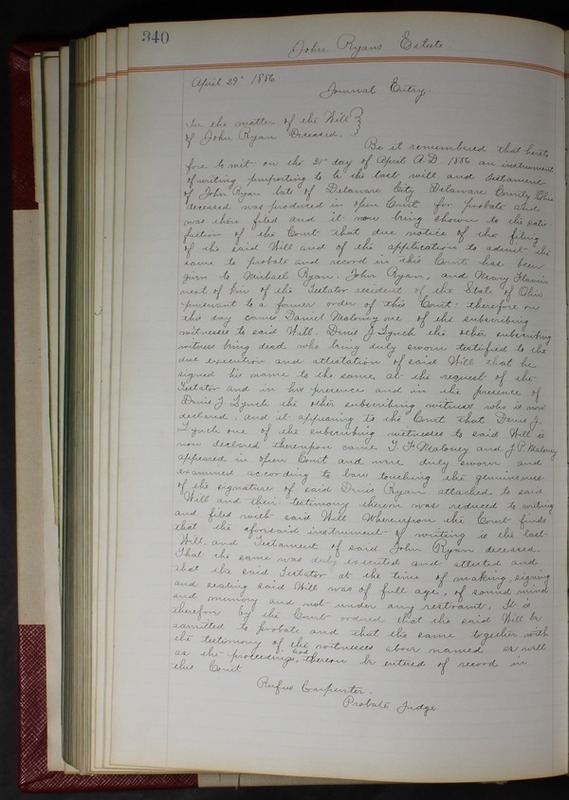 340
John Ryans Estate
April 29" 1886
Journal Entry.
In the matter of the Will
of John Ryan Deceased.
Be it remembered that hereto
fore towit on the day of April A.D. 1886 an instrument
of writing purporting to be the last will and testament
of John Ryan late of Delaware City Delaware County Ohio
deceased was produced in open Court for probate and
was then filed and it now being shown to the satis
faction of the Court that due notice of the filing
of the said Will and of the application to admit the
same to probate and record in this Court has been
given to Michael Ryan. John Ryan, and
next of kin of the Testator resident of the State of Ohio
pursuant to a former order of this Court: therefore on
this day comes Daniel Maloney one of the subscribing
witnesses to said Will. Denis J Lynch the other subscribing
witness being dead who being duly sworn testified to the
due execution and attestation of said Will that he
signed his name to the same, at the request of the
Testator and in his presence and in the presence of
Denis J Lynch the other subscribing witness who is now
declared. and it appearing to the Court that Denis J.
Lynch one of the subscribing witnesses to said Will is
now declared thereupon came T. F. Maloney and J. P. Maloney
appeared in open Court and were duly sworn and
examined according to law touching the genuineness
of the signature of said Denis Ryan attached to said
Will and their testimony thereon was reduced to writing
and filed with said Will Whereupon the Court finds
that the aforsaid instrument of writing is the last
Will and Testament of said John Ryan deceased.
That the same was duly executed and attested and
that the said Testator at the time of making, signing
and sealing said Will was of full age, of sound mind
and memory and not under any restraint. It is
therefor by the Court ordered that the said Will be
admitted to probate and that the same together with
the testimony of the witnesses above named as well
as the proceedings had thereon be entered of record in
this Court
Rufus Carpenter.
Probate Judge.